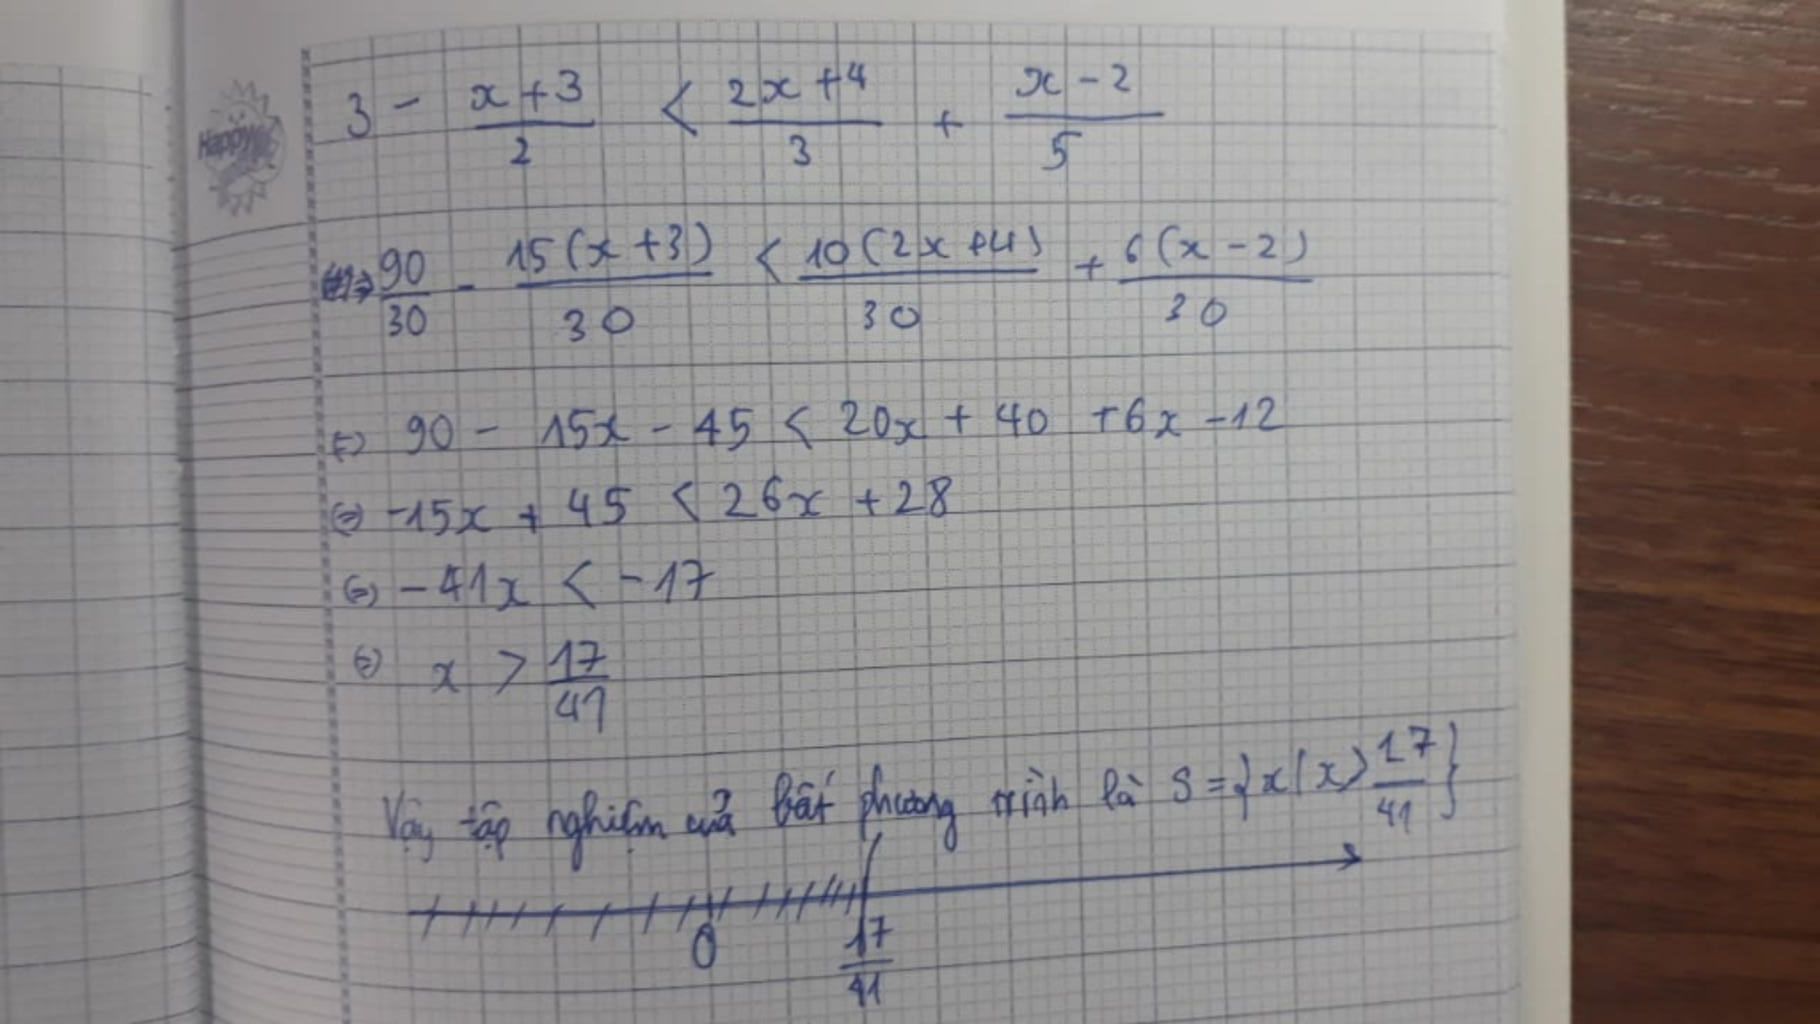 Happy
3 - (x+3)/2 < (2x+4)/3 + (x-2)/5
⇔ 90/30 - 15(x+3)/30 < 10(2x+4)/30 + 6(x-2)/30
⇔ 90 - 15x - 45 < 20x + 40 + 6x - 12
⇔ -15x + 45 < 26x + 28
⇔ -41x < -17
⇔ x > 17/41
Vậy tập nghiệm của bất phương trình là S = {x | x > 17/41}
0 17/41